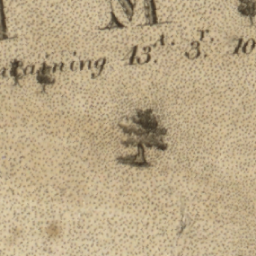 M
taining 13.A. 3.r. 10